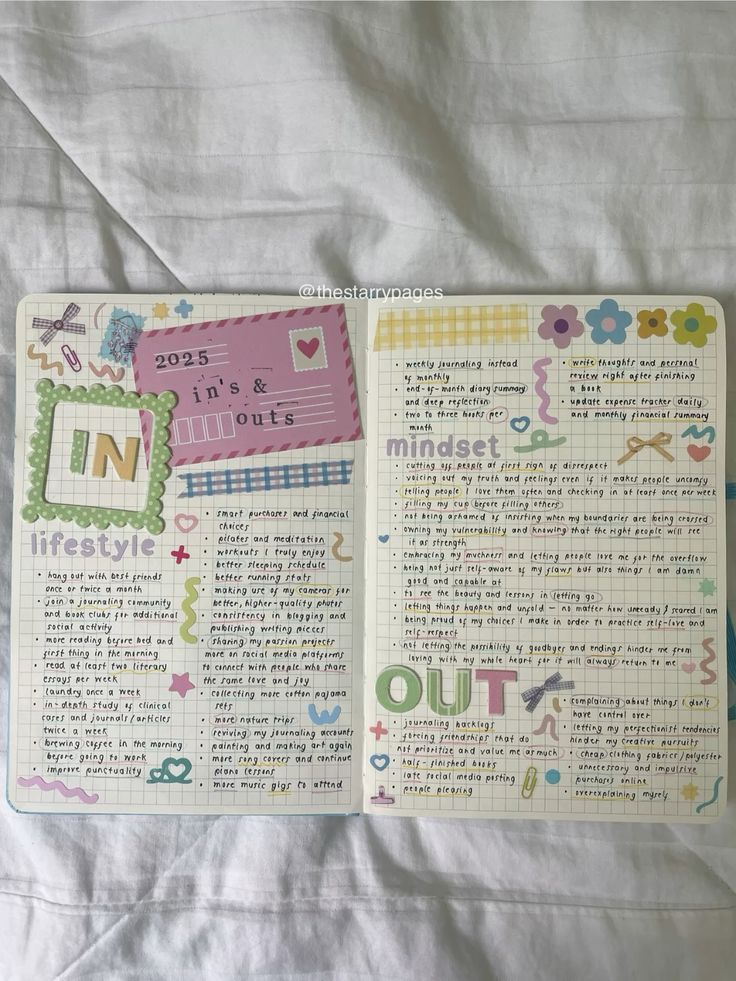 @thestarrypages
2025
in's &
outs
IN
lifestyle
• hang out with best friends
once or twice a month
• join a journaling community
and book clubs for additional
social activity
• more reading before bed and
first thing in the morning
• read at least two literary
essays per week
• laundry once a week
• in-depth study of clinical
cases and journals/articles
twice a week
• brewing coffee in the morning
before going to work
• improve punctuality
• smart purchases and financial
choices
• pilates and meditation
• workouts I truly enjoy
• better sleeping schedule
• better running stats
• making use of my cameras for
better, higher-quality photos
• consistency in blogging and
publishing writing pieces
• sharing my passion projects
more on social media platforms
to connect with people who share
the same love and joy
• collecting more cotton pajama
sets
• more nature trips
• reviving my journaling accounts
• painting and making art again
• more song covers and continue
piano lessons
• more music gigs to attend
• weekly journaling instead
of monthly
• end-of-month diary summary
and deep reflection
• two to three books per
month
• write thoughts and personal
review right after finishing
a book
• update expense tracker daily
and monthly financial summary
mindset
• cutting off people at first sign of disrespect
• voicing out my truth and feelings even if it makes people uncomfy
• telling people I love them often and checking in at least once per week
• filling my cup before filling others
• not being ashamed of insisting when my boundaries are being crossed
• owning my vulnerability and knowing that the right people will see
it as strength
• embracing my muchness and letting people love me for the overflow
• being not just self-aware of my flaws but also things I am damn
good and capable at
• to see the beauty and lessons in letting go
• letting things happen and unfold — no matter how unready & scared I am
• being proud of my choices I make in order to practice self-love and
self-respect
• not letting the possibility of goodbyes and endings hinder me from
loving with my whole heart for it will always return to me
OUT
• journaling backlogs
• forcing friendships that do
not prioritize and value me as much
• half-finished books
• late social media posting
• people pleasing
• complaining about things I don't
have control over
• letting my perfectionist tendencies
hinder my creative pursuits
• cheap clothing fabrics/polyester
• unnecessary and impulsive
purchases online
• overexplaining myself